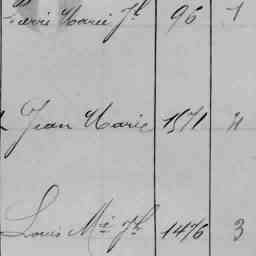 Pierre Marie Jh 96 1
Jean Marie 1571 4
Louis Mie Jh 1476 3